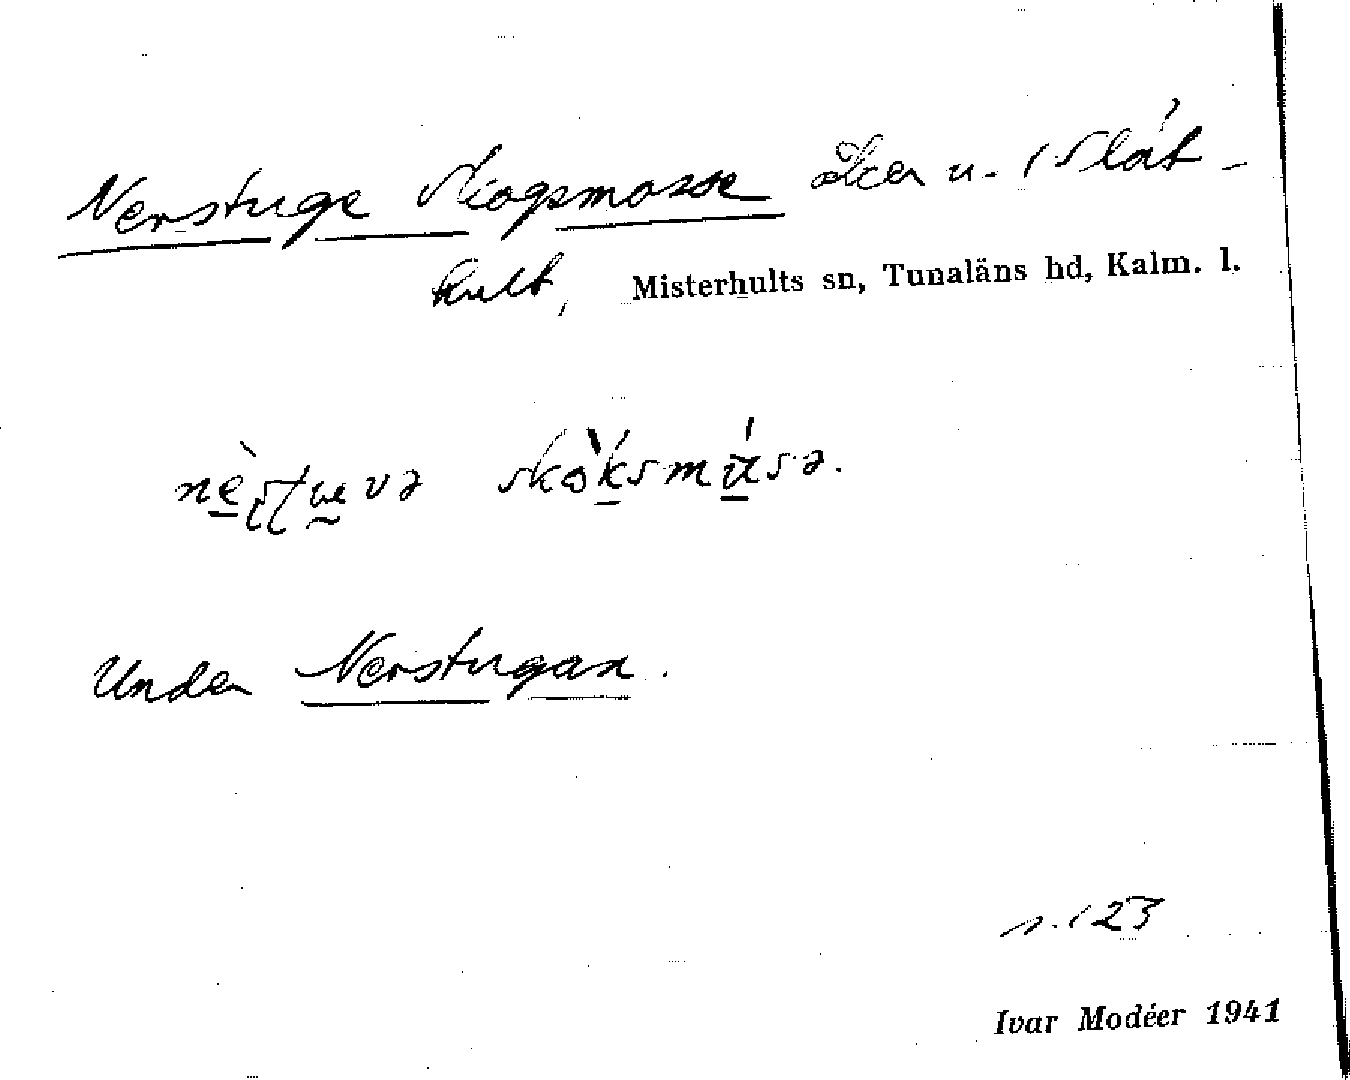 Nerstuge Skogsmosse åker u. 1 Slät-
hult, Misterhults sn, Tunaläns hd, Kalm. l.
Under Nerstugan.
s. 123
Ivar Modéer 1941